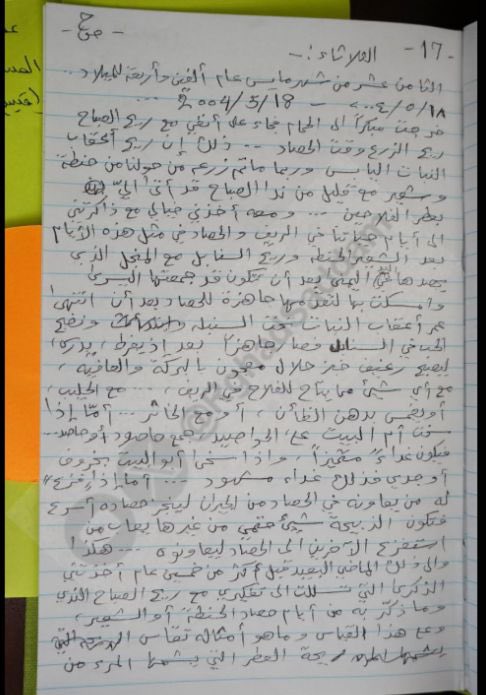 -17- الثلاثاء :-
الثامن عشر من شهر مايس عام ألفين وأربعة للميلاد..
١٨/٥/٢٠٠٤ - 2004/5/18 ...
خرجت مبكراً الى الحمام فجاء على أنفي مع ريح الصباح
ريح الزرع وقت الحصاد ... ذلك إن ريح أعقاب
النبات اليابس وربما ماتم زرعه من حولنا من حنطة
وشعير مع قليل من ندا الصباح قد أتى إليّ
بعطر الفلاحين ... ومعه أخذني خيالي مع ذاكرتي
الى أيام حياتنا في الريف والحصاد في مثل هذه الأيام
بعد الشعير الحنطة وريح السنابل مع المنجل الذي
يحصدها اليمنى بعد أن تكون قد جمعتها اليسرى
وامسكت بها لتقدمها جاهزة للحصاد بعد أن انتهى
عمر أعقاب النبات تحت السنبلة ونضج
الحب في السنابل فصار جاهزاً بعد إذ يفرط، يذرى،
ليصبح رغيف خبز حلال معجون بالبركة والعافية،
مع أي شيئ مما يتاح للفلاح في الريف، ... مع الحليب،
أو يغمس بدهن الضأن، أو مع الخاثر ... أمّا إذا
أم البيت على الحواصيد، جمع حاصود أو حاصد..
فيكون غداءً متميزاً، وإذا سخى أبو البيت بخروف
أو جدي فذلك غداء مشهود ... أما إذا فزع
له من يعاونه في الحصاد من الجيران لينجز حصاده أسرع
فتكون الذبيحة شيئ حتمي من غيرها يعاب من
استفزع الآخرين الى الحصاد ليعاونوه ... هكذا
والى ذلك الماضي البعيد قبل أكثر من خمسين عام أخذتني
الذكرى التي تسللت الى تفكيري مع ريح الصباح الندي
وما ذكّر به من أيام حصاد الحنطة أو الشعير،
وعلى هذا القياس وما هو أمثاله تقاس
ريحة العطر التي يشمها المرء من